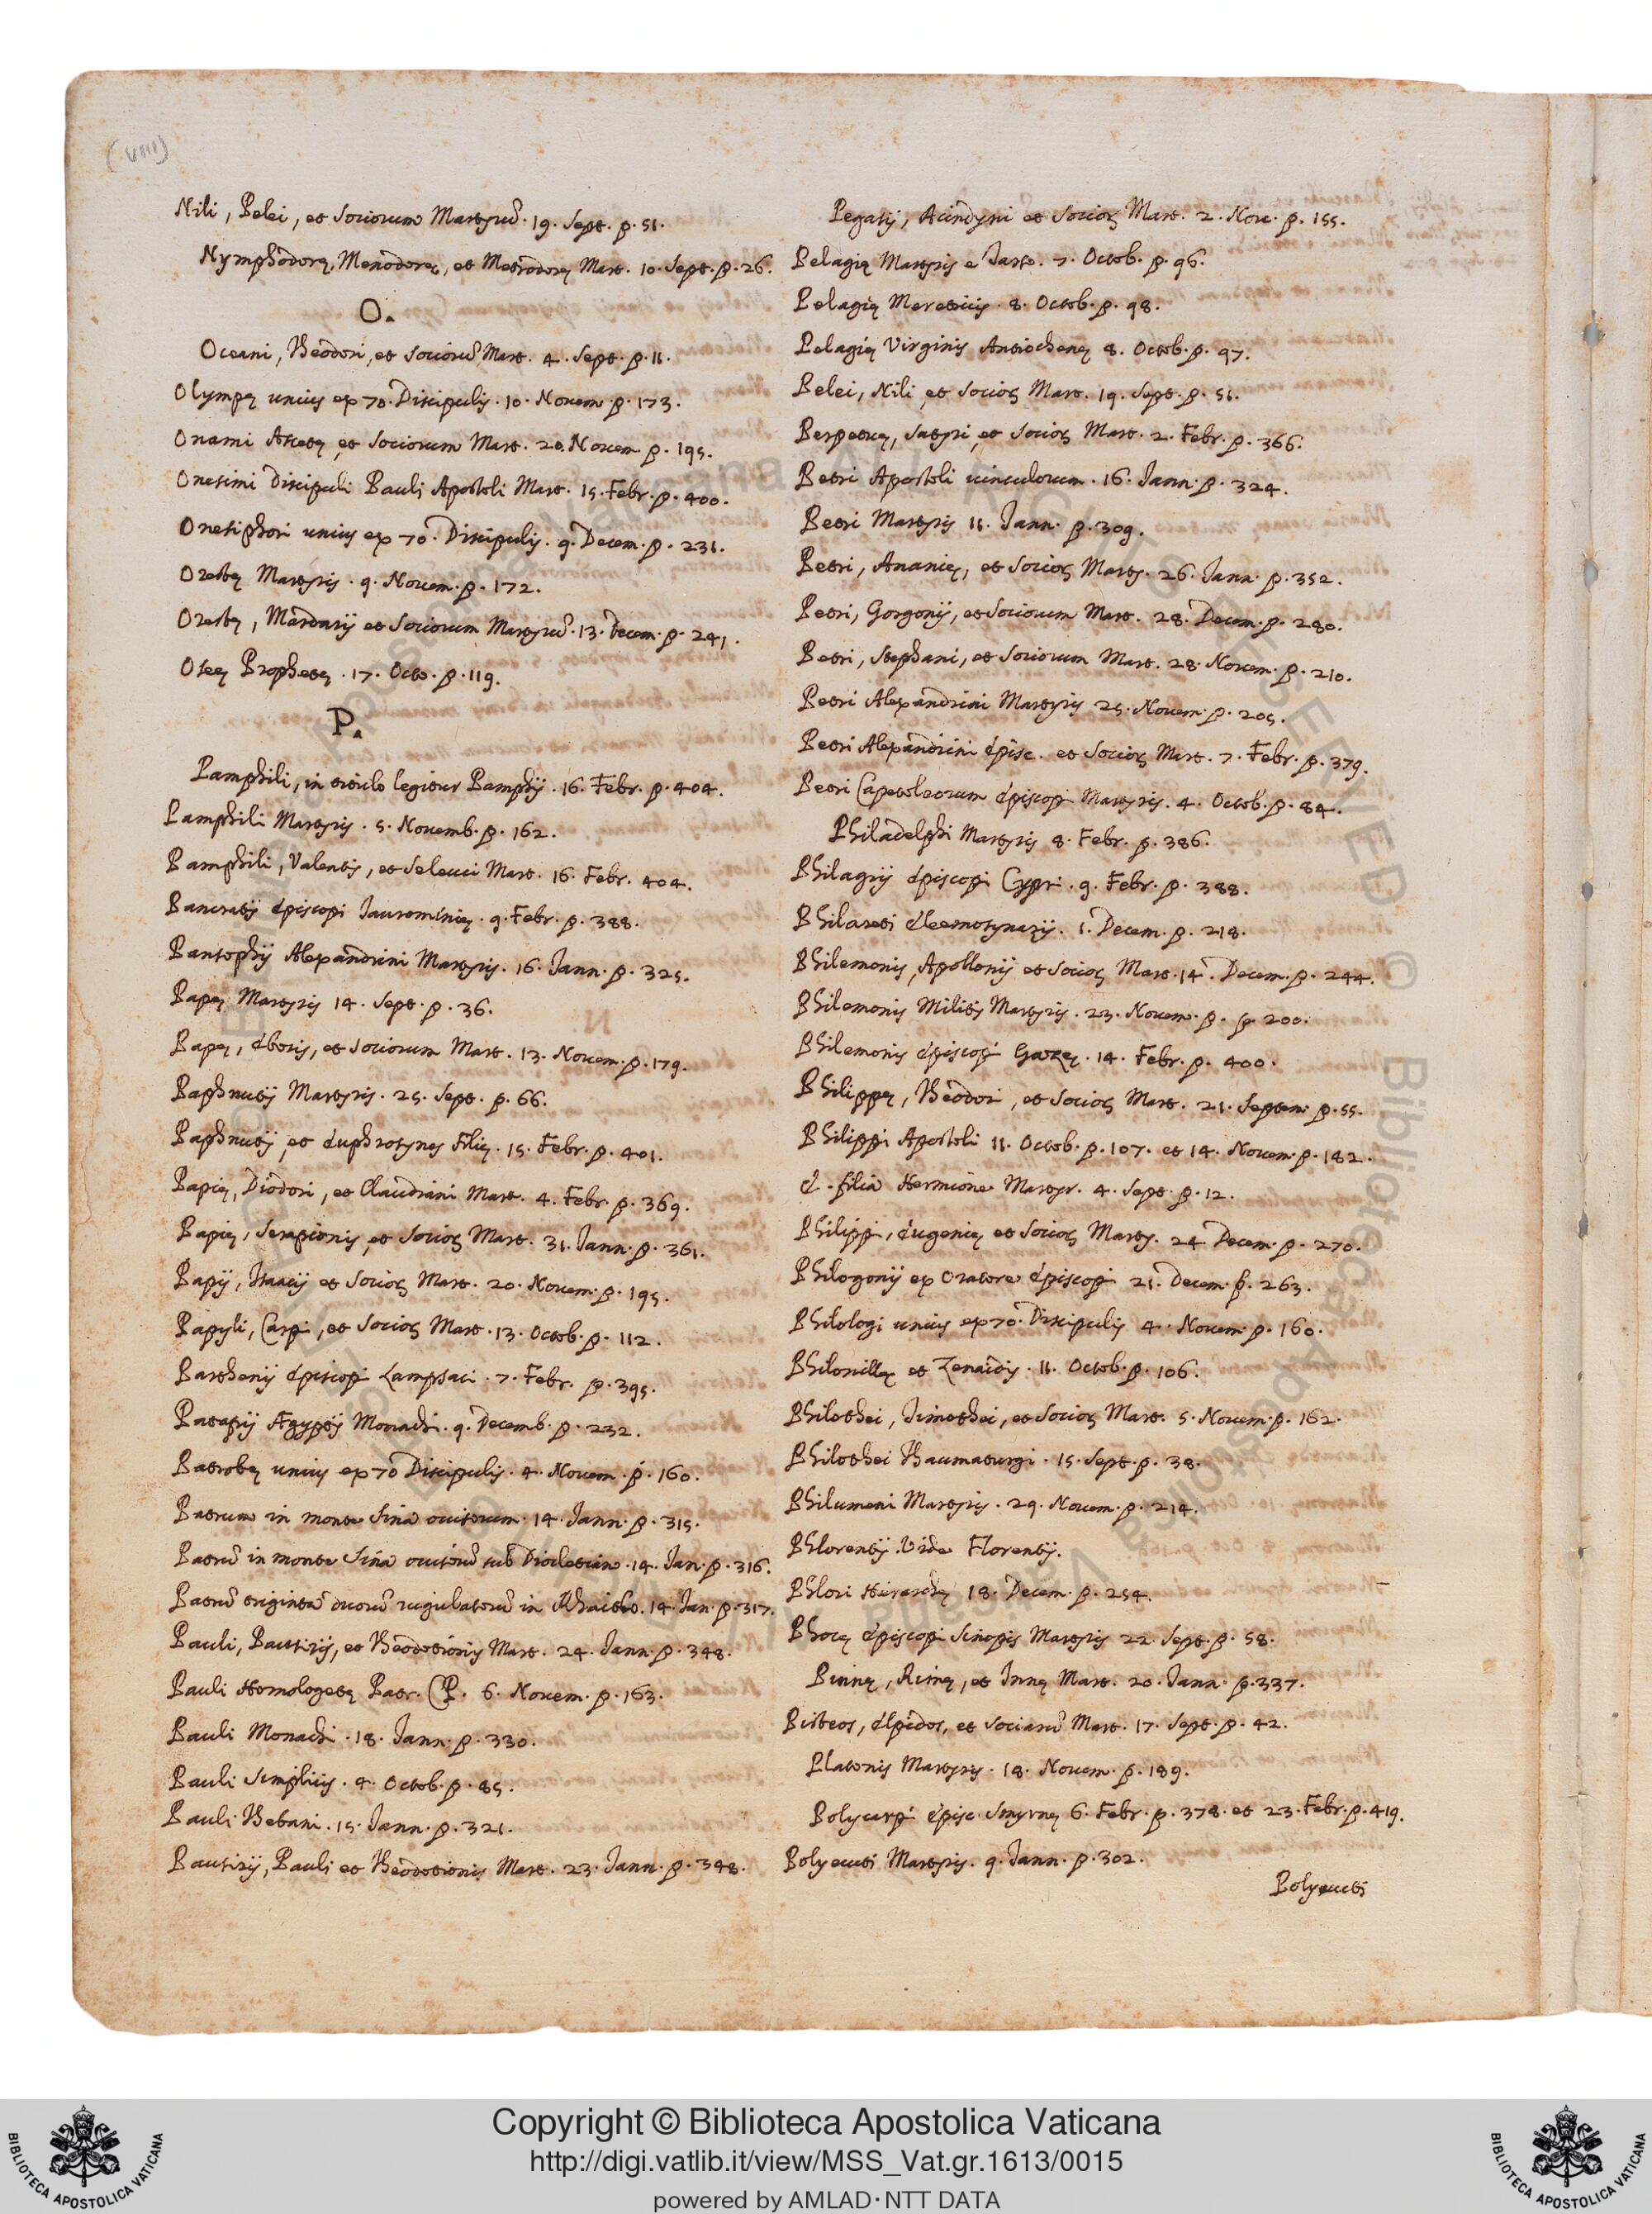 (VIII)
Nili, Pelei, et Sociorum Martyrũ. 19. Sept. p. 51.
Nymphodorę, Menodorę, et Metrodorę Mart. 10. Sept. p. 26.
O.
Oceani, Theodori, et sociorũ Mart. 4. Sept. p. 11.
Olympę unius ex 70. Discipulis. 10. Novem. p. 173.
Onami Ascetę, et Sociorum Mart. 20. Novem. p. 195.
Onesimi Discipuli Pauli Apostoli Mart. 15. Febr. p. 400.
Onesiphori unius ex 70. Discipulis. 9. Decem. p. 231.
Orestę Martyris. 9. Novem. p. 172.
Orestę, Mardarij et Sociorum Martyrũ. 13. Decem. p. 241.
Oseę Prophetę. 17. Octo. p. 119.
P.
Pamphili, in titulo legitur Pamphij. 16. Febr. p. 404.
Pamphili Martyris. 5. Novemb. p. 162.
Pamphili, Valentis, et Seleuci Mart. 16. Febr. 404.
Pancratij Episcopi Taurominię. 9. Febr. p. 388.
Pantophij Alexandrini Martyris. 16. Jann. p. 325.
Papę Martyris 14. Sept. p. 36.
Papę, Eboris, et Sociorum Mart. 13. Novem. p. 179.
Paphnutij Martyris. 25. Sept. p. 66.
Paphnutij, et Euphrosynes Filię. 15. Febr. p. 401.
Papię, Diodori, et Claudiani Mart. 4. Febr. p. 369.
Papię, Serapionis, et Socioꝝ Mart. 31. Jann. p. 361.
Papij, Isaacij et Socioꝝ Mart. 20. Novem. p. 195.
Papyli, Carpi, et Socioꝝ Mart. 13. Octob. p. 112.
Parthenij Episcopi Lampsaci. 7. Febr. p. 395.
Patapij Ægyptij Monachi. 9. Decemb. p. 232.
Patrobę unius ex 70 Discipulis. 4. Novem. p. 160.
Patrum in monte Sina occisorum. 14. Jann. p. 315.
Patrũ in monte Sina occisorũ sub Diocletian. 14. Jan. p. 316.
Patrũ triginta duorũ iugulatorũ in Rhaitho. 14. Jan. p. 317.
Pauli, Pausirij, et Theodotionis Mart. 24. Jann. p. 348.
Pauli Homologetę Patr. CP. 6. Novem. p. 163.
Pauli Monachi. 18. Jann. p. 330.
Pauli Simplicis. 4. Octob. p. 85.
Pauli Thebani. 15. Jann. p. 321.
Pausirij, Pauli et Theodotionis Mart. 23. Jann. p. 348.
Pegasij, Acindyni et Socioꝝ Mart. 2. Nov. p. 155.
Pelagię Martyris e Tarso. 7. Octob. p. 96.
Pelagię Meretricis. 8. Octob. p. 98.
Pelagię Virginis Antiochenę 8. Octob. p. 97.
Pelei, Nili, et Socioꝝ Mart. 19. Sept. p. 51.
Perpetuę, Satyri, et Socioꝝ Mart. 2. Febr. p. 366.
Petri Apostoli vinculorum. 16. Jann. p. 324.
Petri Martyris 11. Jann. p. 309.
Petri, Ananię, et Socioꝝ Marty. 26. Jann. p. 352.
Petri, Gorgonij, et Sociorum Mart. 28. Decem. p. 280.
Petri, Stephani, et Sociorum Mart. 28. Novem. p. 210.
Petri Alexandrini Martyris 25. Novem. p. 205.
Petri Alexandrini Episc. et Socioꝝ Mart. 7. Febr. p. 379.
Petri Capetoleorum Episcopi Martyris. 4. Octob. p. 84.
Philadelphi Martyris 8. Febr. p. 386.
Philagrij Episcopi Cypri. 9. Febr. p. 388.
Philareti Eleemosynarij. 1. Decem. p. 218.
Philemonis, Apollonij et Socioꝝ Mart. 14. Decem. p. 244.
Philemonis Militis Martyris. 23. Novem. p. p. 200.
Philemonis Episcopi Gazę. 14. Febr. p. 400.
Philippę, Theodori, et Socioꝝ Mart. 21. Septem. p. 55.
Philippi Apostoli 11. Octob. p. 107. et 14. Novem. p. 182.
E. filia Hermione Martyr. 4. Sept. p. 12.
Philippi, Eugenię et Socioꝝ Marty. 24 Decem. p. 270.
Philogonij ex Oratore Episcopi 21. Decem. p. 263.
Philologi unius ex 70. Discipulis 4. Novem. p. 160.
Philonillę et Zenaidis. 11. Octob. p. 106.
Philothei, Timothei, et Socioꝝ Mart. 5. Novem. p. 162.
Philothei Thaumaturgi. 15. Sept. p. 38.
Philumeni Martyris. 29. Novem. p. 214.
Phlorentij. Vide Florentij.
Phlori Hierarchę 18. Decem. p. 254.
Phocę Episcopi Sinopis Martyris 22. Sept. p. 58.
Pinnę, Rimę, et Innę Mart. 20. Jann. p. 337.
Pisteos, Elpidos, et Sociarũ Mart. 17. Sept. p. 42.
Platonis Martyris. 18. Novem. p. 189.
Polycarpi Episc. Smyrnę 6. Febr. p. 378. et 23. Febr. p. 419.
Polyeucti Martyris. 9. Jann. p. 302.
Polyeucti
Copyright © Biblioteca Apostolica Vaticana
http://digi.vatlib.it/view/MSS_Vat.gr.1613/0015
powered by AMLAD·NTT DATA
BIBLIOTECA APOSTOLICA VATICANA
BIBLIOTECA APOSTOLICA VATICANA